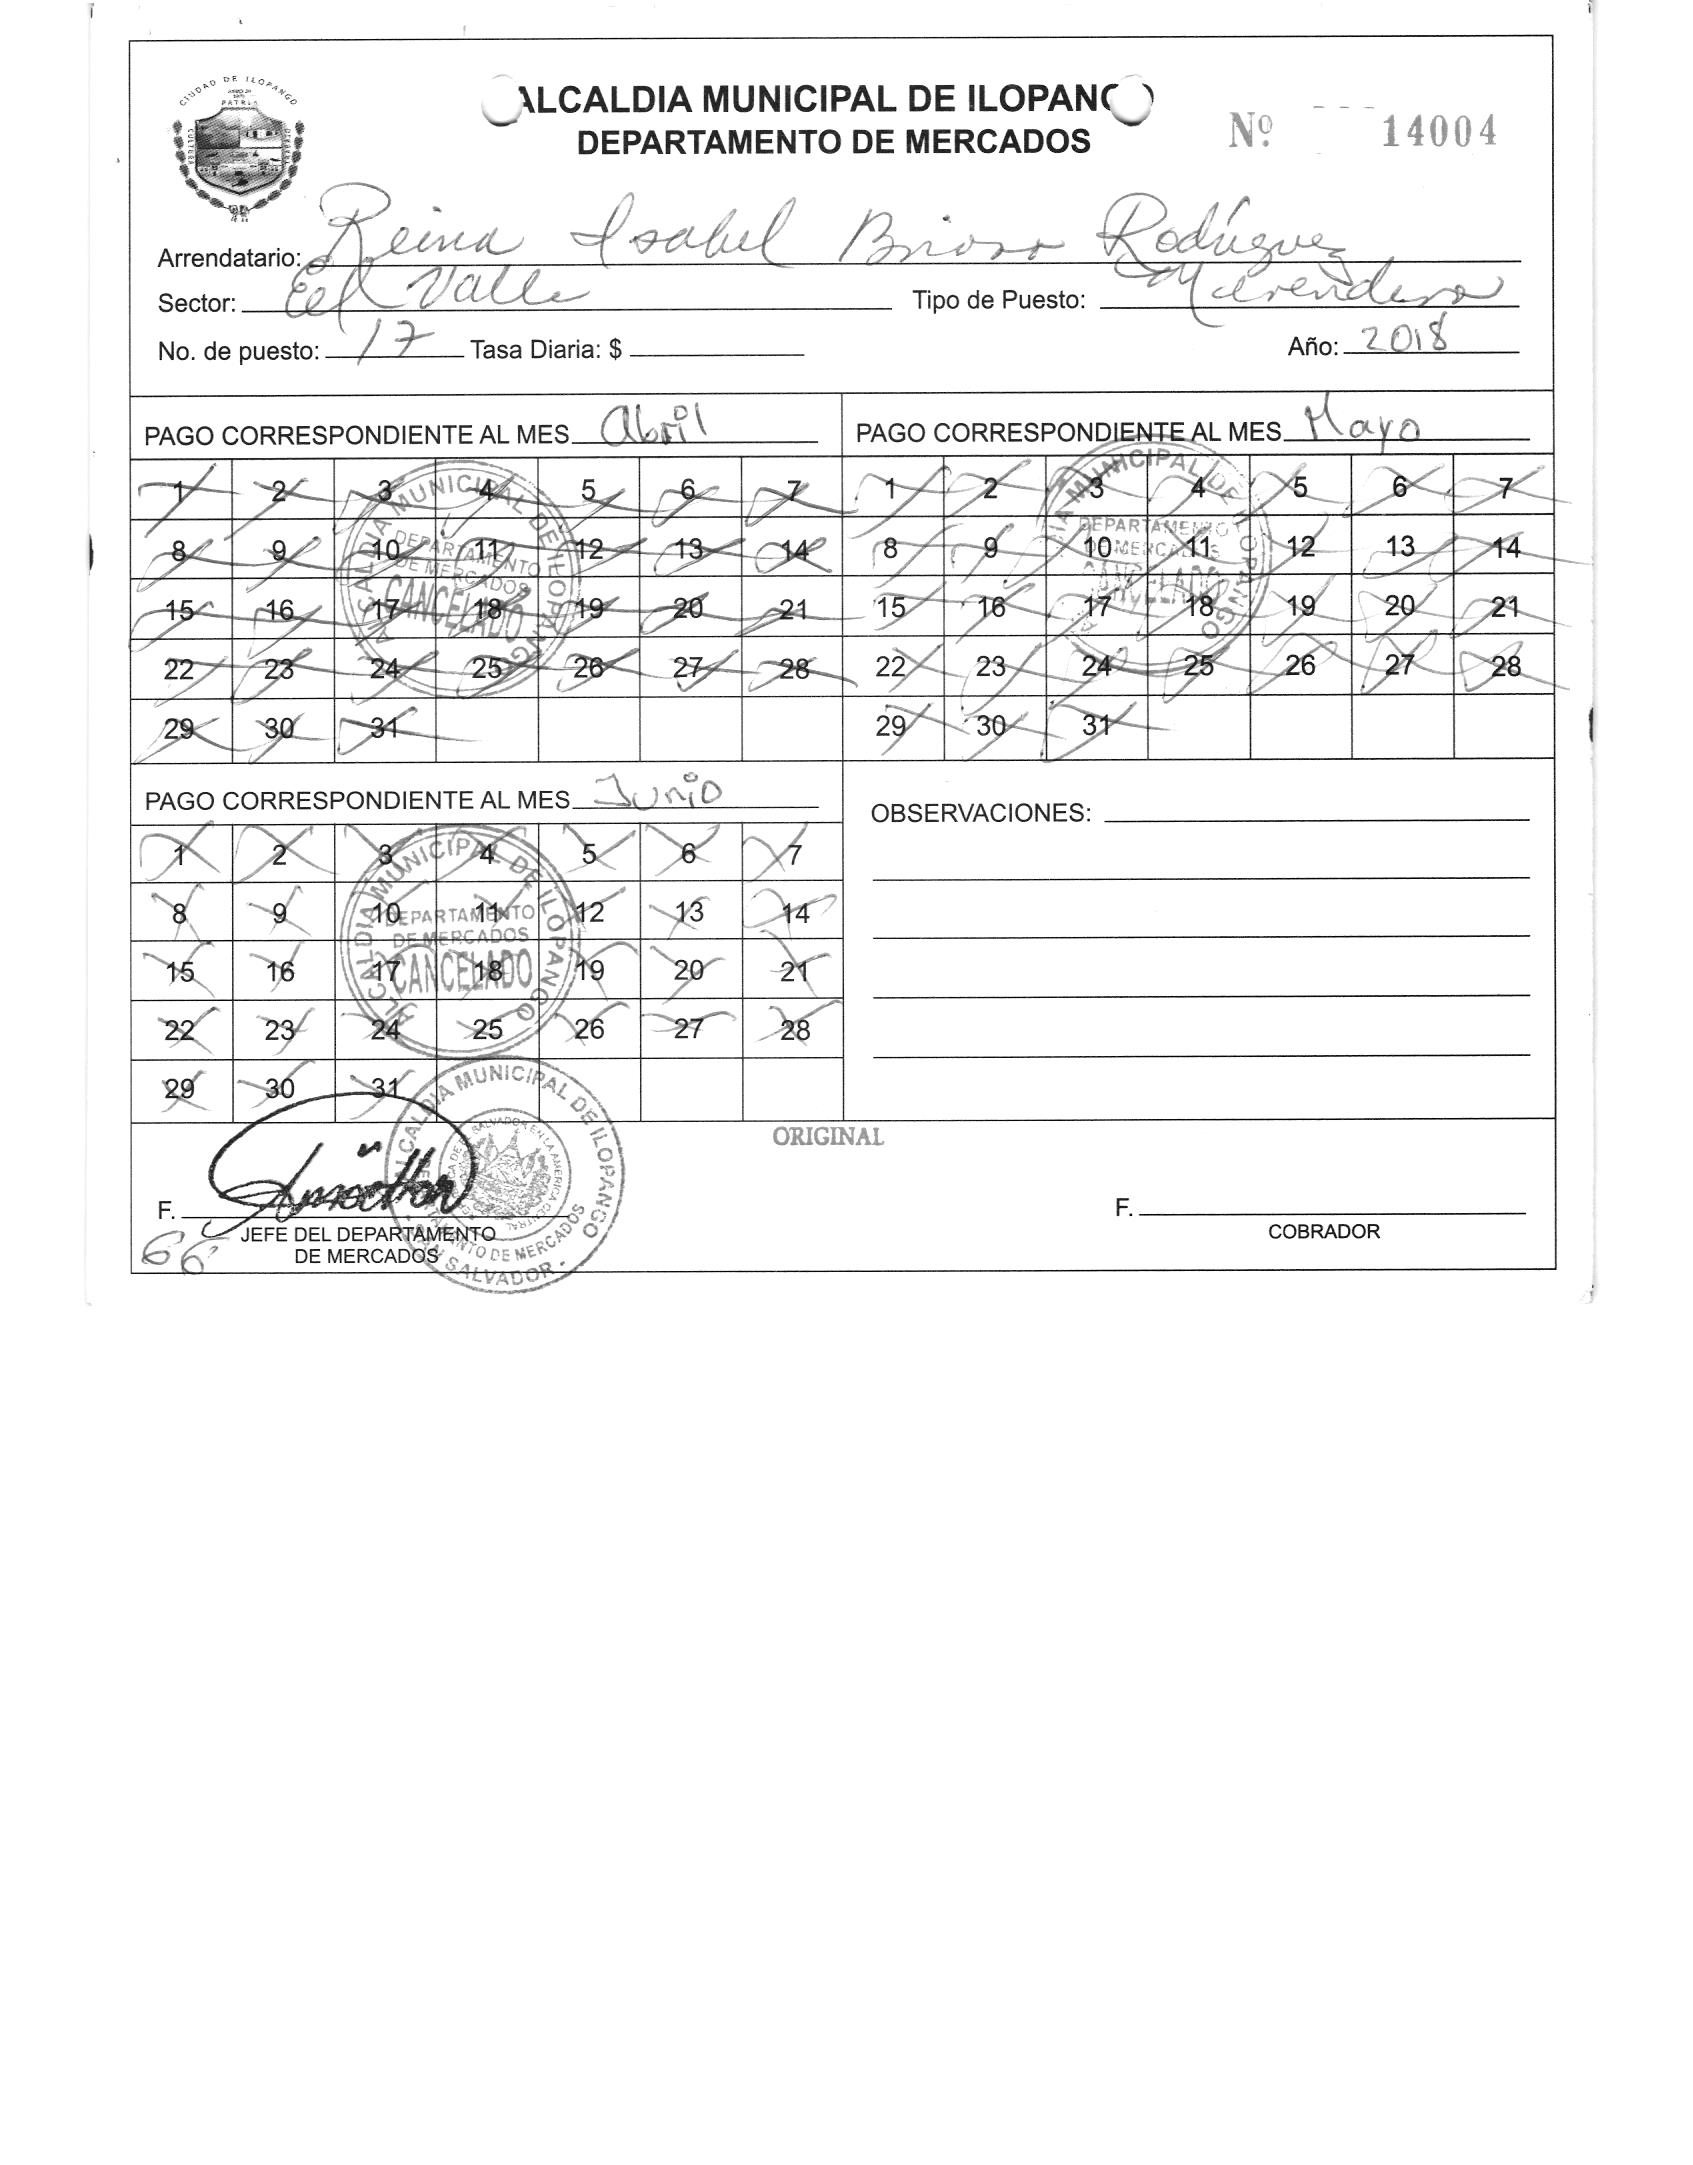 CIUDAD DE ILOPANGO
PATRIA
CULTURA
ALCALDIA MUNICIPAL DE ILOPANGO
DEPARTAMENTO DE MERCADOS
Nº 14004
Arrendatario: Reina Isabel Rodríguez
Sector: El Valle Tipo de Puesto: Merendero
No. de puesto: 17 Tasa Diaria: $ Año: 2018
PAGO CORRESPONDIENTE AL MES Abril
1 2 3 4 5 6 7
8 9 10 11 12 13 14
15 16 17 18 19 20 21
22 23 24 25 26 27 28
29 30 31
ALCALDIA MUNICIPAL DE ILOPANGO
DEPARTAMENTO
DE MERCADOS
CANCELADO
PAGO CORRESPONDIENTE AL MES Mayo
1 2 3 4 5 6 7
8 9 10 11 12 13 14
15 16 17 18 19 20 21
22 23 24 25 26 27 28
29 30 31
ALCALDIA MUNICIPAL DE ILOPANGO
DEPARTAMENTO
DE MERCADOS
CANCELADO
PAGO CORRESPONDIENTE AL MES Junio
1 2 3 4 5 6 7
8 9 10 11 12 13 14
15 16 17 18 19 20 21
22 23 24 25 26 27 28
29 30 31
ALCALDIA MUNICIPAL DE ILOPANGO
DEPARTAMENTO
DE MERCADOS
CANCELADO
OBSERVACIONES:
ORIGINAL
F.
JEFE DEL DEPARTAMENTO
DE MERCADOS
66
ALCALDIA MUNICIPAL DE ILOPANGO
SALVADOR EN LA AMERICA CENTRAL
DE MERCADOS
SAN SALVADOR
F.
COBRADOR